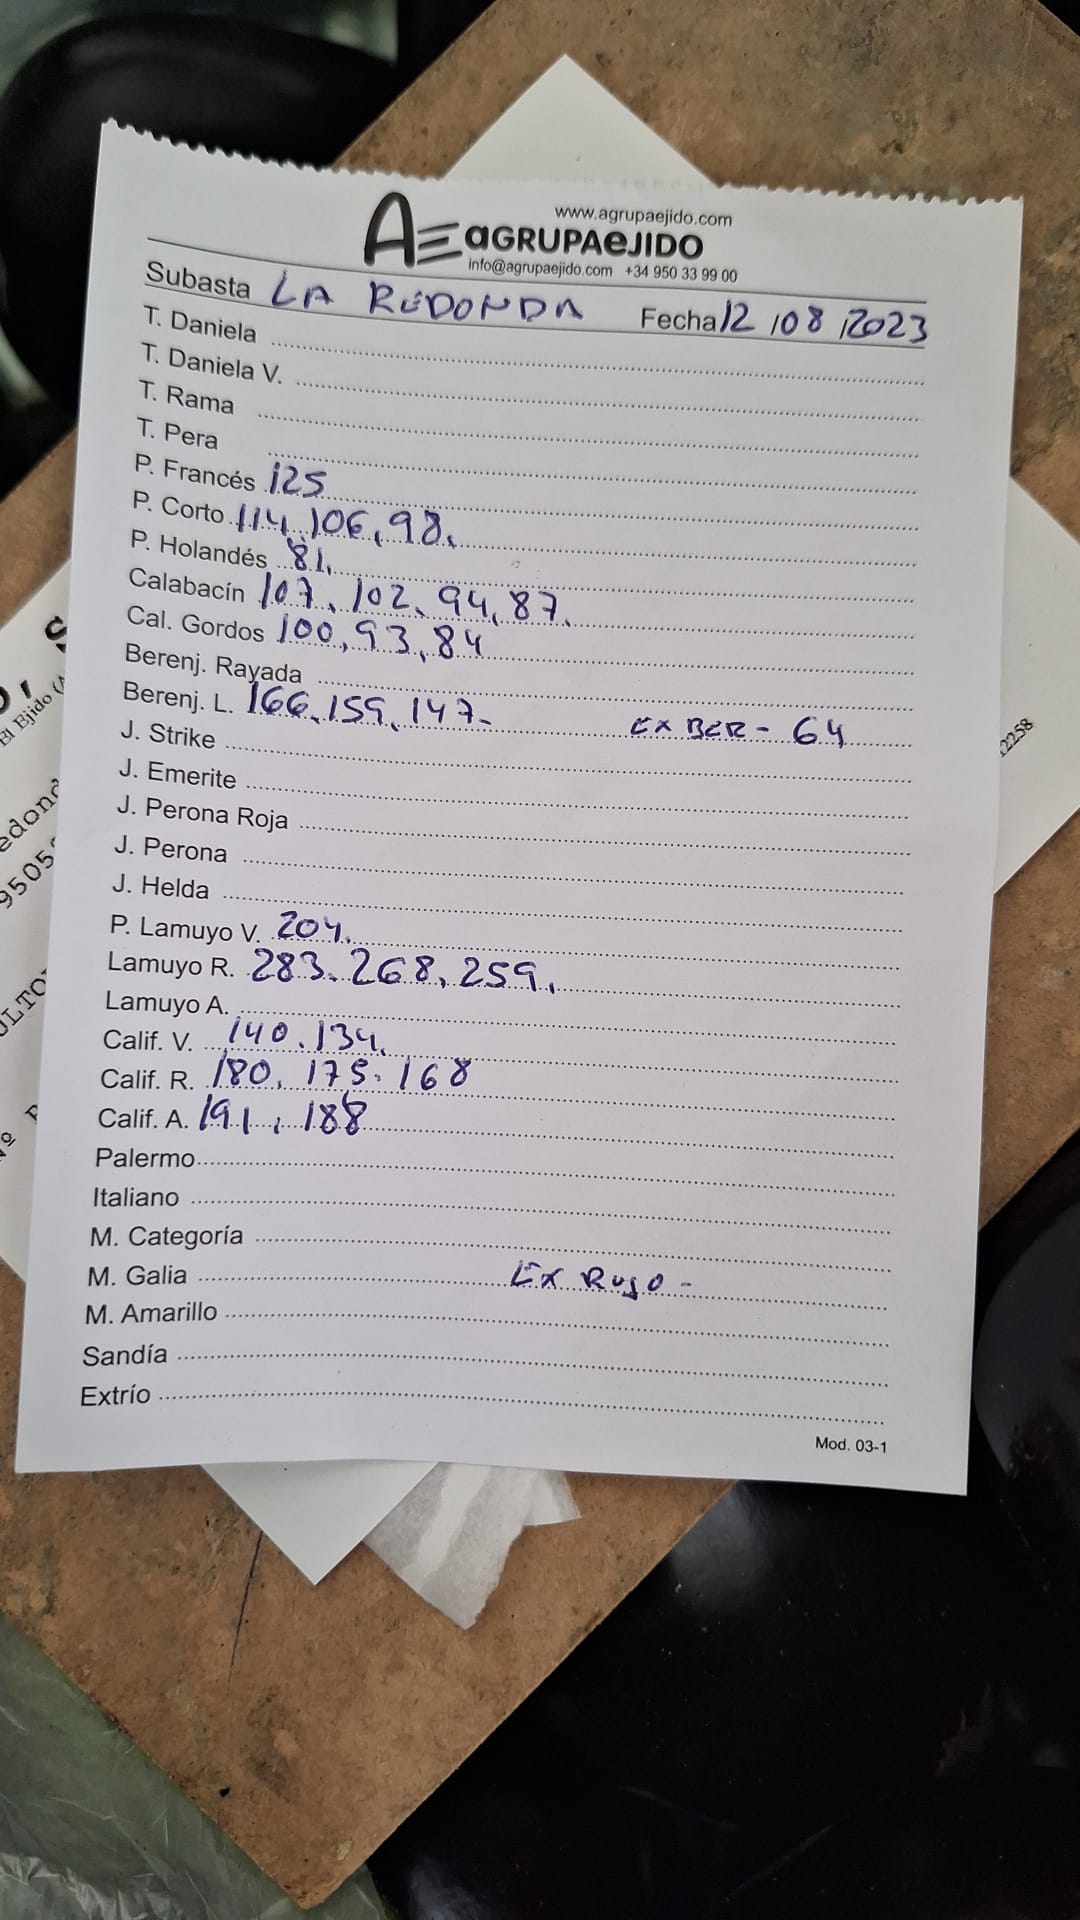 www.agrupaejido.com
AE aGRUPAeJIDO
info@agrupaejido.com +34 950 33 99 00
Subasta LA REDONDA Fecha 12/08/2023
T. Daniela
T. Daniela V.
T. Rama
T. Pera
P. Francés 125
P. Corto 114, 106, 98,
P. Holandés 81,
Calabacín 107, 102, 94, 87,
Cal. Gordos 100, 93, 84
Berenj. Rayada
Berenj. L. 166, 159, 147- EX BER - 64
J. Strike
J. Emerite
J. Perona Roja
J. Perona
J. Helda
P. Lamuyo V. 204,
Lamuyo R. 283, 268, 259,
Lamuyo A.
Calif. V. 140, 134,
Calif. R. 180, 175, 168
Calif. A. 191, 188
Palermo
Italiano
M. Categoría
M. Galia EX Rojo -
M. Amarillo
Sandía
Extrío
Mod. 03-1
El Ejido (A
edond
9505
2258